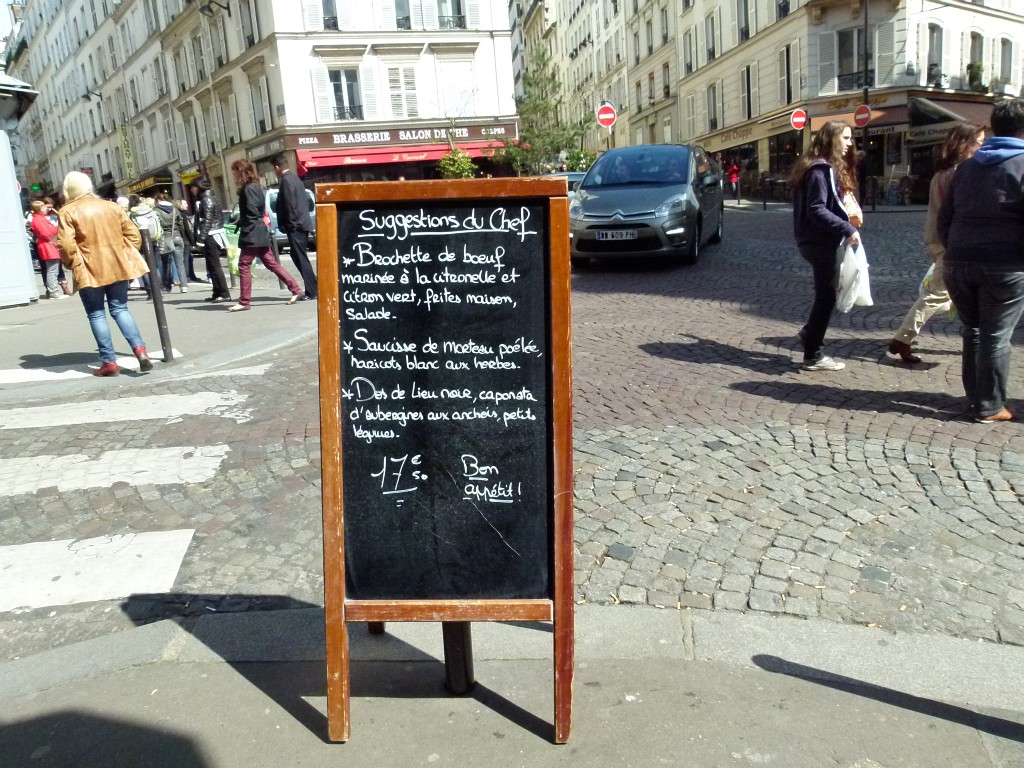 PIZZA BRASSERIE SALON DE THE CREPES
Suggestions du Chef
* Brochette de boeuf
marinée à la citronelle et
citron vert, frites maison,
Salade.
* Saucisse de morteau poêlée,
haricots blanc aux herbes.
* Dos de Lieu noir, caponata
d'aubergines aux anchois, petits
légumes.
17€50
Bon
appétit!